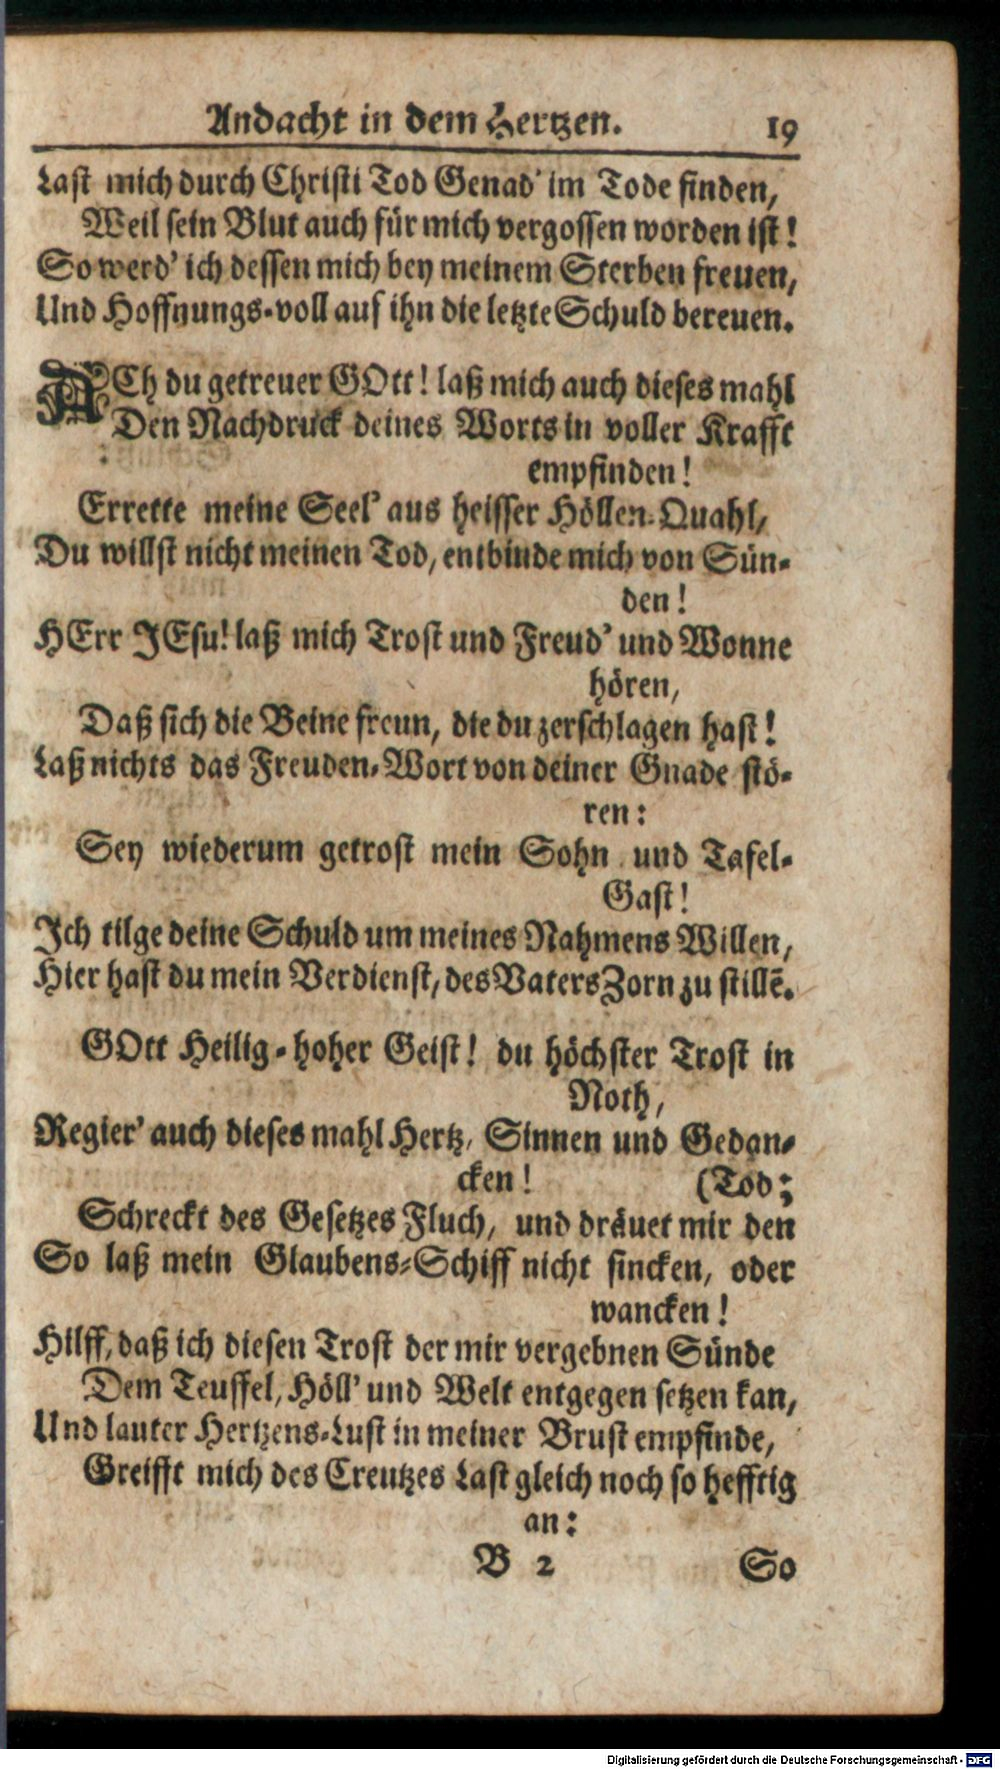 Andacht in dem Hertzen. 19
Last mich durch Christi Tod Genad' im Tode finden,
Weil sein Blut auch für mich vergossen worden ist!
So werd' ich dessen mich bey meinem Sterben freuen,
Und Hoffnungs-voll auf ihn die letzte Schuld bereuen.
ACh du getreuer GOtt! laß mich auch dieses mahl
Den Nachdruck deines Worts in voller Krafft
empfinden!
Errette meine Seel' aus heisser Höllen-Quahl,
Du willst nicht meinen Tod, entbinde mich von Sün-
den!
HErr JEsu! laß mich Trost und Freud' und Wonne
hören,
Daß sich die Beine freun, die du zerschlagen hast!
Laß nichts das Freuden-Wort von deiner Gnade stö-
ren:
Sey wiederum getrost mein Sohn und Tafel-
Gast!
Ich tilge deine Schuld um meines Nahmens Willen,
Hier hast du mein Verdienst, des Vaters Zorn zu stillē.
GOtt Heilig-hoher Geist! du höchster Trost in
Noth,
Regier' auch dieses mahl Hertz, Sinnen und Gedan-
cken! (Tod;
Schreckt des Gesetzes Fluch, und dräuet mir den
So laß mein Glaubens-Schiff nicht sincken, oder
wancken!
Hilff, daß ich diesen Trost der mir vergebnen Sünde
Dem Teuffel, Höll' und Welt entgegen setzen kan,
Und lauter Hertzens-Lust in meiner Brust empfinde,
Greifft mich des Creutzes Last gleich noch so hefftig
an:
B 2 So
Digitalisierung gefördert durch die Deutsche Forschungsgemeinschaft - DFG